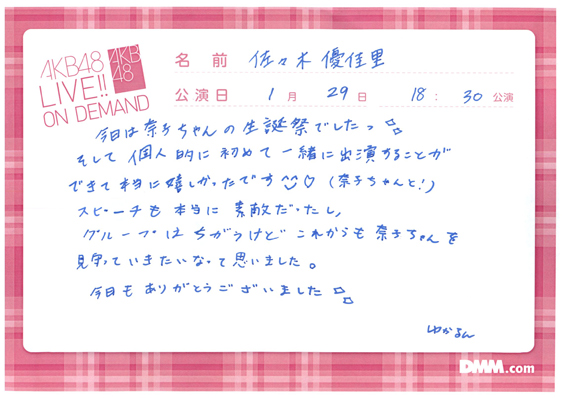 AKB48
LIVE!!
ON DEMAND
AKB
48
名前 佐々木 優佳里
公演日 1月 29日 18:30公演
今日は奈子ちゃんの生誕祭でしたっ
そして個人的に初めて一緒に出演することが
できて本当に嬉しかったです^^♡(奈子ちゃんと!)
スピーチも本当に素敵だったし、
グループはちがうけどこれからも奈子ちゃんを
見守っていきたいなって思いました。
今日もありがとうございました
ゆかるん
DMM.com